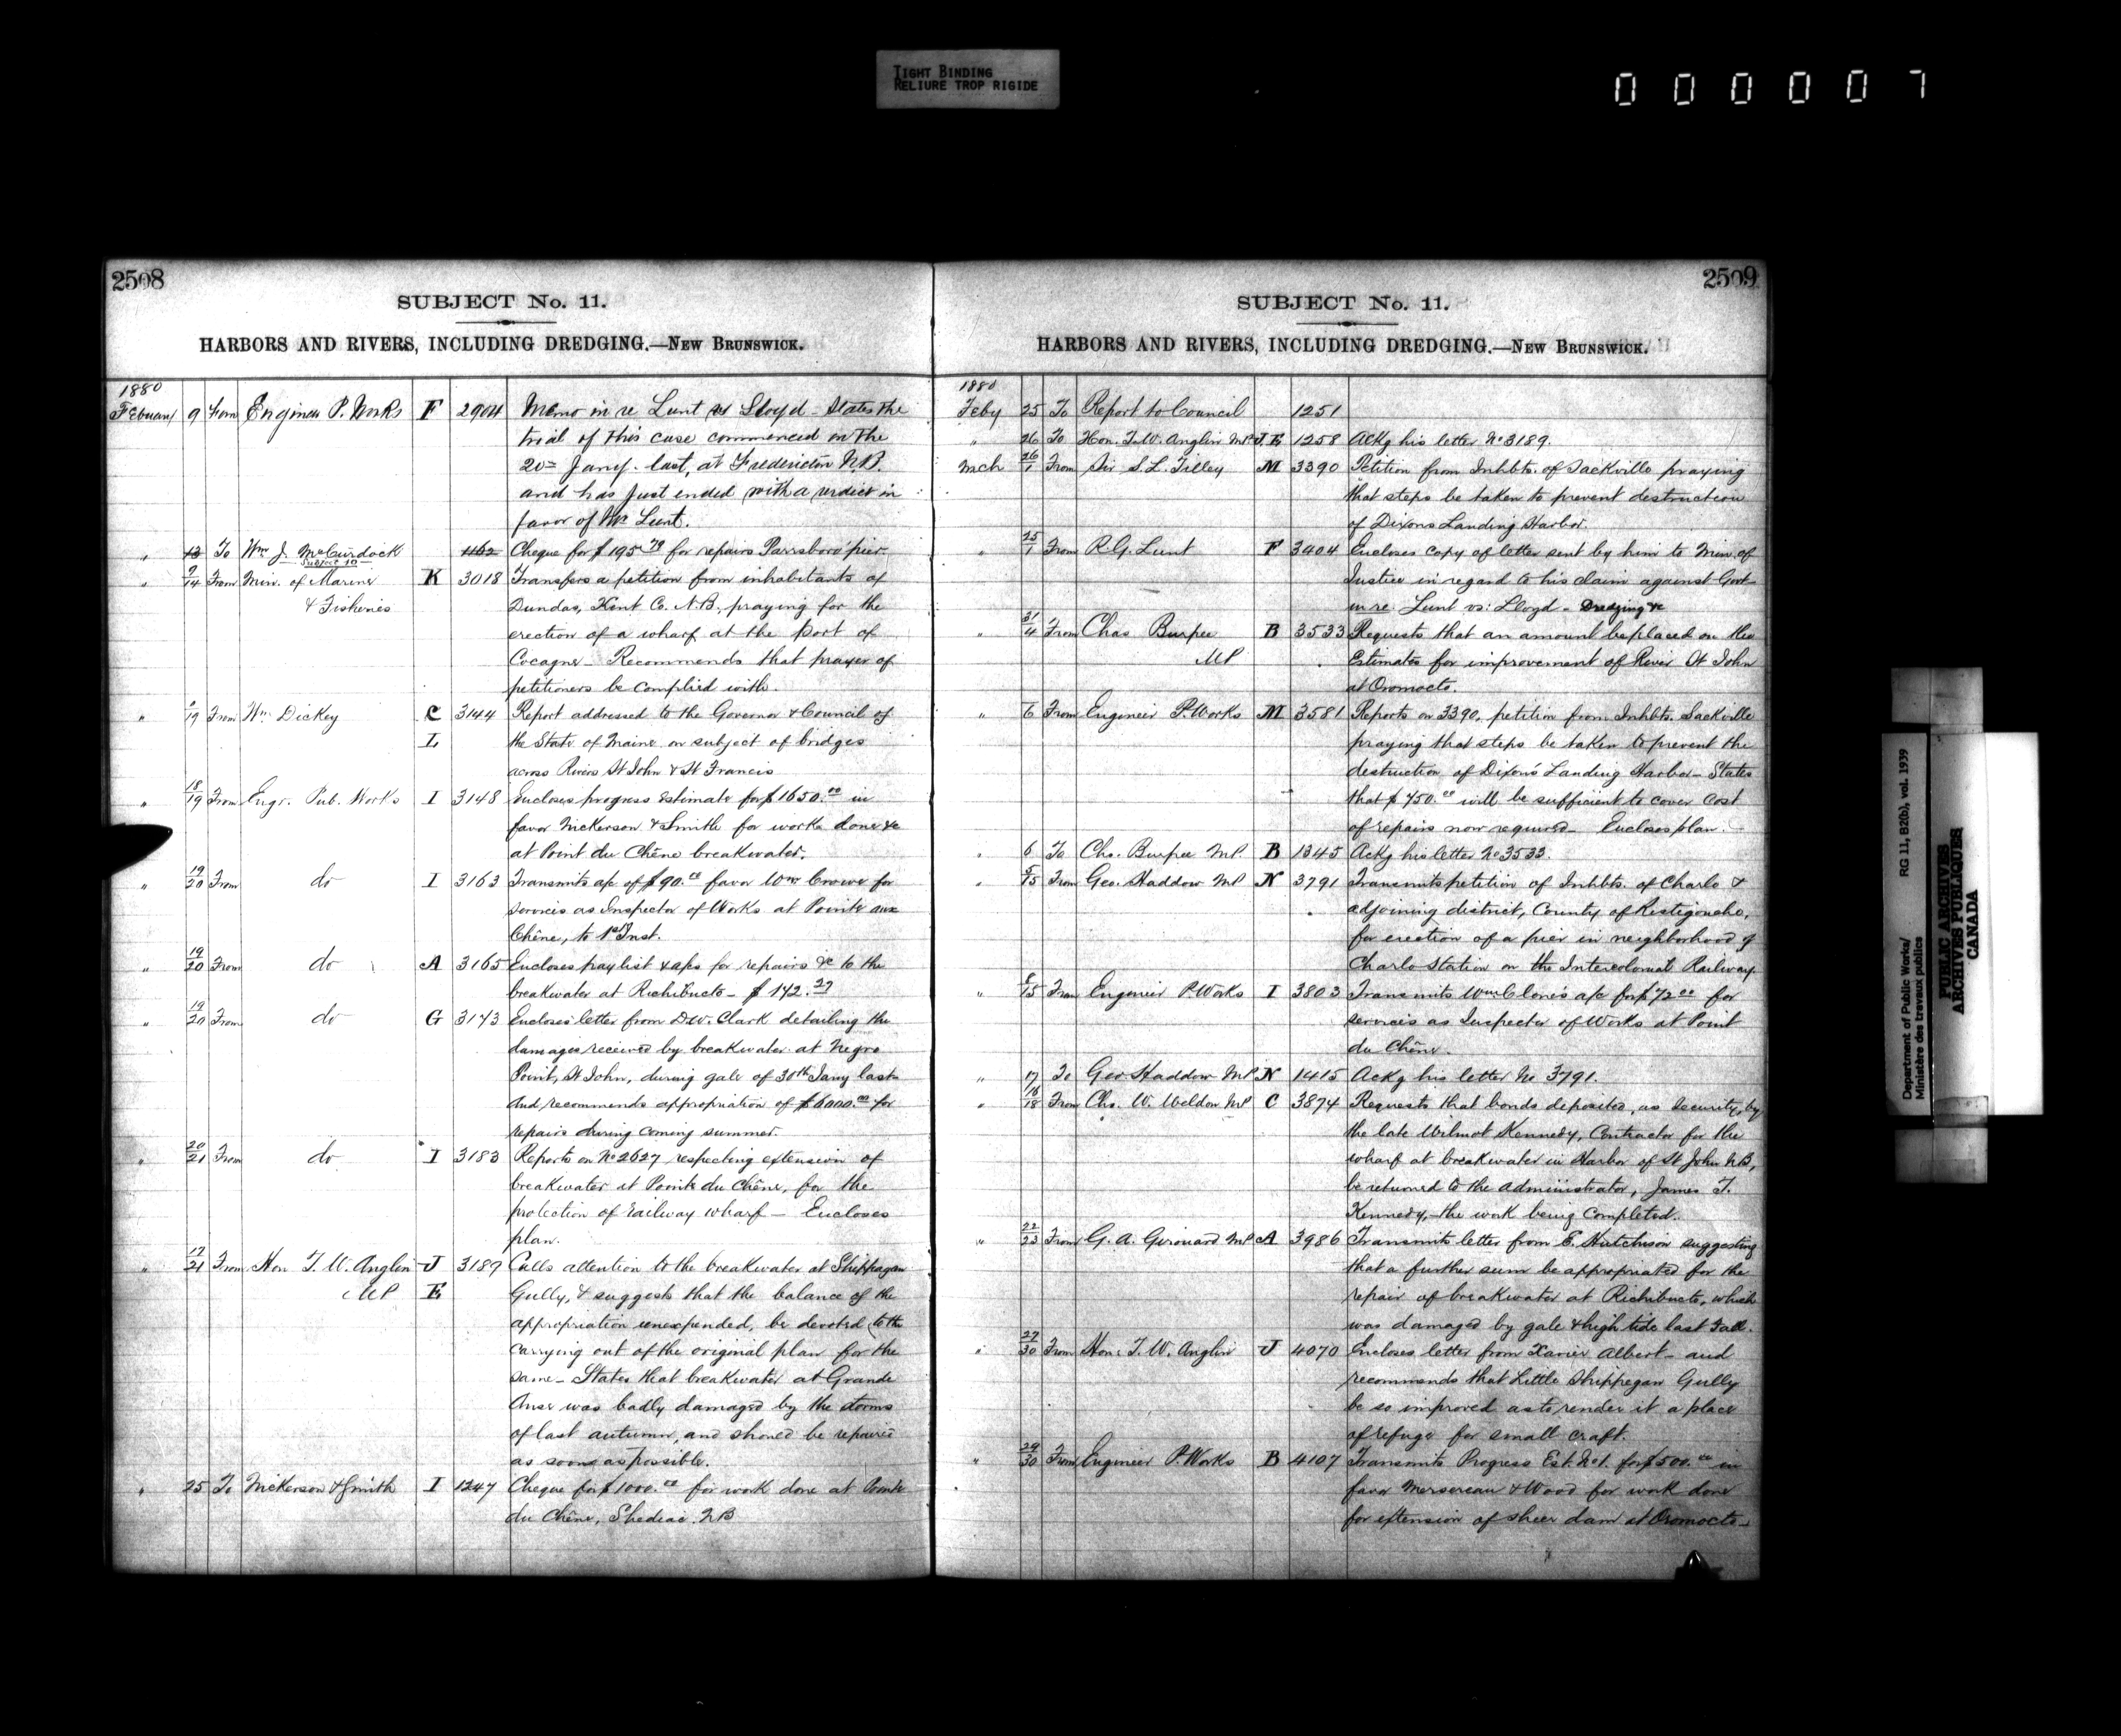 TIGHT BINDING
RELIURE TROP RIGIDE
000007
2508
SUBJECT No. 11.
HARBORS AND RIVERS, INCLUDING DREDGING.—NEW BRUNSWICK.
1880
February 9 From Engineer P. Works F 2904 Memo in re Lunt vs Lloyd - States the
trial of this case commenced on the
20th Jany. last, at Fredericton N.B.
and has just ended with a verdict in
favor of Mr Lunt.
" 13 To Wm J. McCurdock 1162 Cheque for $195.79 for repairs Parrsboro' pier
Subject 10
" 9/14 From Min. of Marine K 3018 Transfers a petition from inhabitants of
& Fisheries Dundas, Kent Co. N.B. praying for the
erection of a wharf at the port of
Cocagne - Recommends that prayer of
petitioners be complied with.
" /19 From Wm Dickey C 3144 Report addressed to the Governor & Council of
L the State of Maine on subject of bridges
across Rivers St John & St Francis
" 18/19 From Engr. Pub. Works I 3148 Encloses progress Estimate for $1650.00 in
favor Nickerson & Smith for works done &c
at Point du Chêne breakwater.
" 19/20 From do I 3163 Transmits a/c of $90.00 favor Wm for
services as Inspector of Works at Pointe aux
Chêne, to 1st Inst.
" 19/20 From do A 3165 Encloses paylist & a/cs for repairs &c to the
breakwater at Richibucto - $142.27
" 19/20 From do G 3173 Encloses letter from D.W. Clark detailing the
damages received by breakwater at Negro
Point, St John, during gale of 30th Jany last
and recommends appropriation of $6000.00 for
repairs during coming summer.
" 20/21 From do I 3183 Reports on No 2627 respecting extension of
breakwater at Pointe du Chêne, for the
protection of railway wharf - Encloses
plan.
" 17/21 From Hon T. W. Anglin J 3189 Calls attention to the breakwater at Shippegan
MP E Gully, & suggests that the balance of the
appropriation unexpended, be devoted to the
carrying out of the original plan for the
same - States that breakwater at Grande
Anse was badly damaged by the storms
of last autumn, and should be repaired
as soon as possible.
" 25 To Nickerson & Smith I 1247 Cheque for $1000.00 for work done at Pointe
du Chêne, Shediac. N.B
2509
SUBJECT No. 11.
HARBORS AND RIVERS, INCLUDING DREDGING.—NEW BRUNSWICK.
1880
Feby 25 To Report to Council 1251
" 26 To Hon. T.W. Anglin MP J.E 1258 Ackg his letter No 3189.
Mch 26/1 From Sir S.L. Tilley M 3390 Petition from Inhbts. of Sackville praying
that steps be taken to prevent destruction
of Dixons Landing Harbor.
" 25/1 From R.G. Lunt F 3404 Encloses copy of letter sent by him to Min. of
Justice in regard to his claim against Govt
in re: Lunt vs: Lloyd - Dredging &c
" 31/4 From Chas Burpee B 3533 Requests that an amount be placed on the
MP Estimates for improvement of River St John
at Oromocto.
" 6 From Engineer P. Works M 3581 Reports on 3390, petition from Inhbts. Sackville
praying that steps be taken to prevent the
destruction of Dixon's Landing Harbor - States
that $750.00 will be sufficient to cover cost
of repairs now required - Encloses plan.
" 6 To Chs. Burpee MP. B 1345 Ackg his letter No 3533.
" 5/15 From Geo. Haddow MP N 3791 Transmits petition of Inhbts. of Charlo &
adjoining district, County of Restigouche,
for erection of a pier in neighborhood of
Charlo Station on the Intercolonial Railway.
" 8/15 From Engineer P. Works I 3803 Transmits Wm a/c for $72.00 for
services as Inspector of Works at Point
du Chêne.
" 17 To Geo Haddow MP N 1415 Ackg his letter No 3791.
" 16/18 From Chs. W. Weldon MP C 3874 Requests that bonds deposited, as security, by
the late Wilmot Kennedy, Contractor for the
wharf at breakwater in Harbor of St John N.B,
be returned to the administrator, James T.
Kennedy, - the work being completed.
" 22/23 From G. A. Girouard MP A 3986 Transmits letter from E. Hutchison suggesting
that a further sum be appropriated for the
repair of breakwater at Richibucto, which
was damaged by gale & high tide last Fall.
" 27/30 From Hon. T. W. Anglin J 4070 Encloses letter from Xavier Albert - and
recommends that Little Shippegan Gully
be so improved as to render it a place
of refuge for small craft.
" 29/30 From Engineer P. Works B 4107 Transmits Progress Est. No 1. for $500.00 in
favor Mersereau & Wood for work done
for extension of sheer dam at Oromocto -
Department of Public Works/ RG 11, B2(b), vol. 1939
Ministère des travaux publics
PUBLIC ARCHIVES
ARCHIVES PUBLIQUES
CANADA